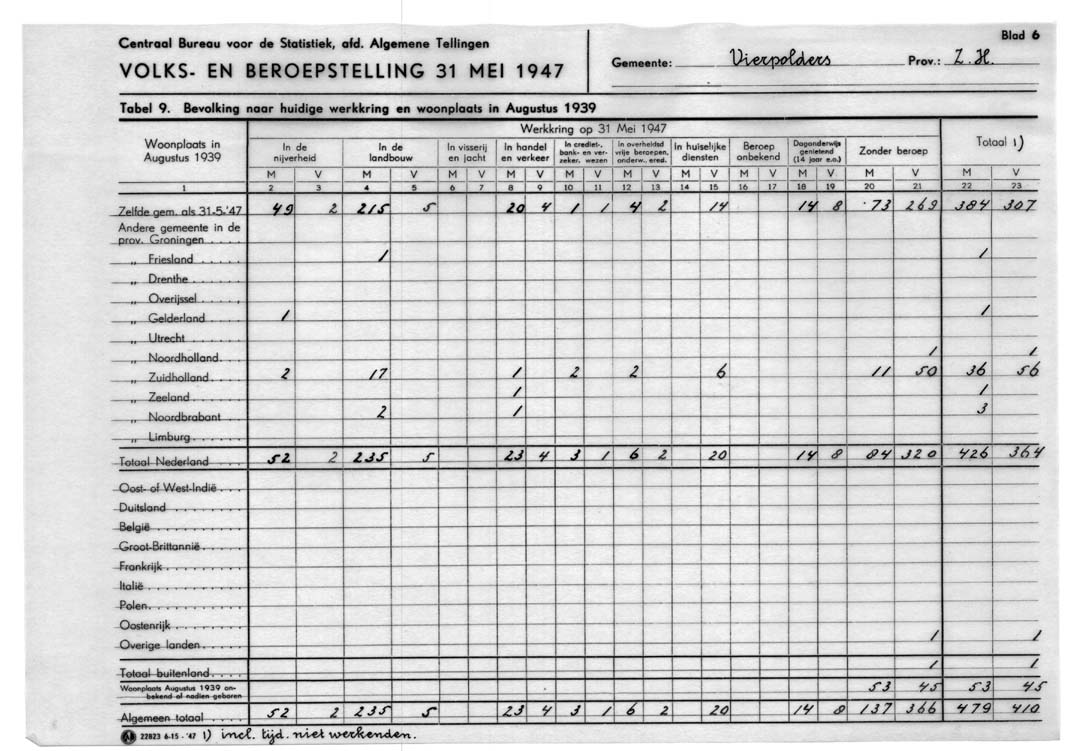 Centraal Bureau voor de Statistiek, afd. Algemene Tellingen
VOLKS- EN BEROEPSTELLING 31 MEI 1947
Gemeente: Vierpolders Prov.: Z.H.
Blad 6
Tabel 9. Bevolking naar huidige werkkring en woonplaats in Augustus 1939
Woonplaats in Augustus 1939
Werkkring op 31 Mei 1947
In de nijverheid
In de landbouw
In visserij en jacht
In handel en verkeer
In crediet-, bank- en verzeker. wezen
In overheidsd vrije beroepen, onderw., ered.
In huiselijke diensten
Beroep onbekend
Dagonderwijs genietend (14 jaar e.o.)
Zonder beroep
Totaal 1)
M V M V M V M V M V M V M V M V M V M V M V
1 2 3 4 5 6 7 8 9 10 11 12 13 14 15 16 17 18 19 20 21 22 23
Zelfde gem. als 31-5-'47 49 2 215 5 20 4 1 1 4 2 14 14 8 73 269 384 307
Andere gemeente in de
prov. Groningen . . . .
„ Friesland . . . . . 1 1
„ Drenthe . . . . . .
„ Overijssel . . . . .
„ Gelderland . . . . 1 1
„ Utrecht . . . . . .
„ Noordholland . . . 1 1
„ Zuidholland . . . . 2 17 1 2 2 6 11 50 36 56
„ Zeeland . . . . . . 1 1
„ Noordbrabant . . . 2 1 3
„ Limburg . . . . . .
Totaal Nederland . . . . 52 2 235 5 23 4 3 1 6 2 20 14 8 84 320 426 364
Oost- of West-Indië . . .
Duitsland . . . . . . . .
België . . . . . . . . .
Groot-Brittannië . . . . .
Frankrijk . . . . . . . .
Italië . . . . . . . . . .
Polen . . . . . . . . . .
Oostenrijk . . . . . . .
Overige landen . . . . . 1 1
Totaal buitenland . . . . 1 1
Woonplaats Augustus 1939 on-
bekend of nadien geboren 53 45 53 45
Algemeen totaal . . . . 52 2 235 5 23 4 3 1 6 2 20 14 8 137 366 479 410
22823 6-15 - '47 1) incl. tijd. niet werkenden.